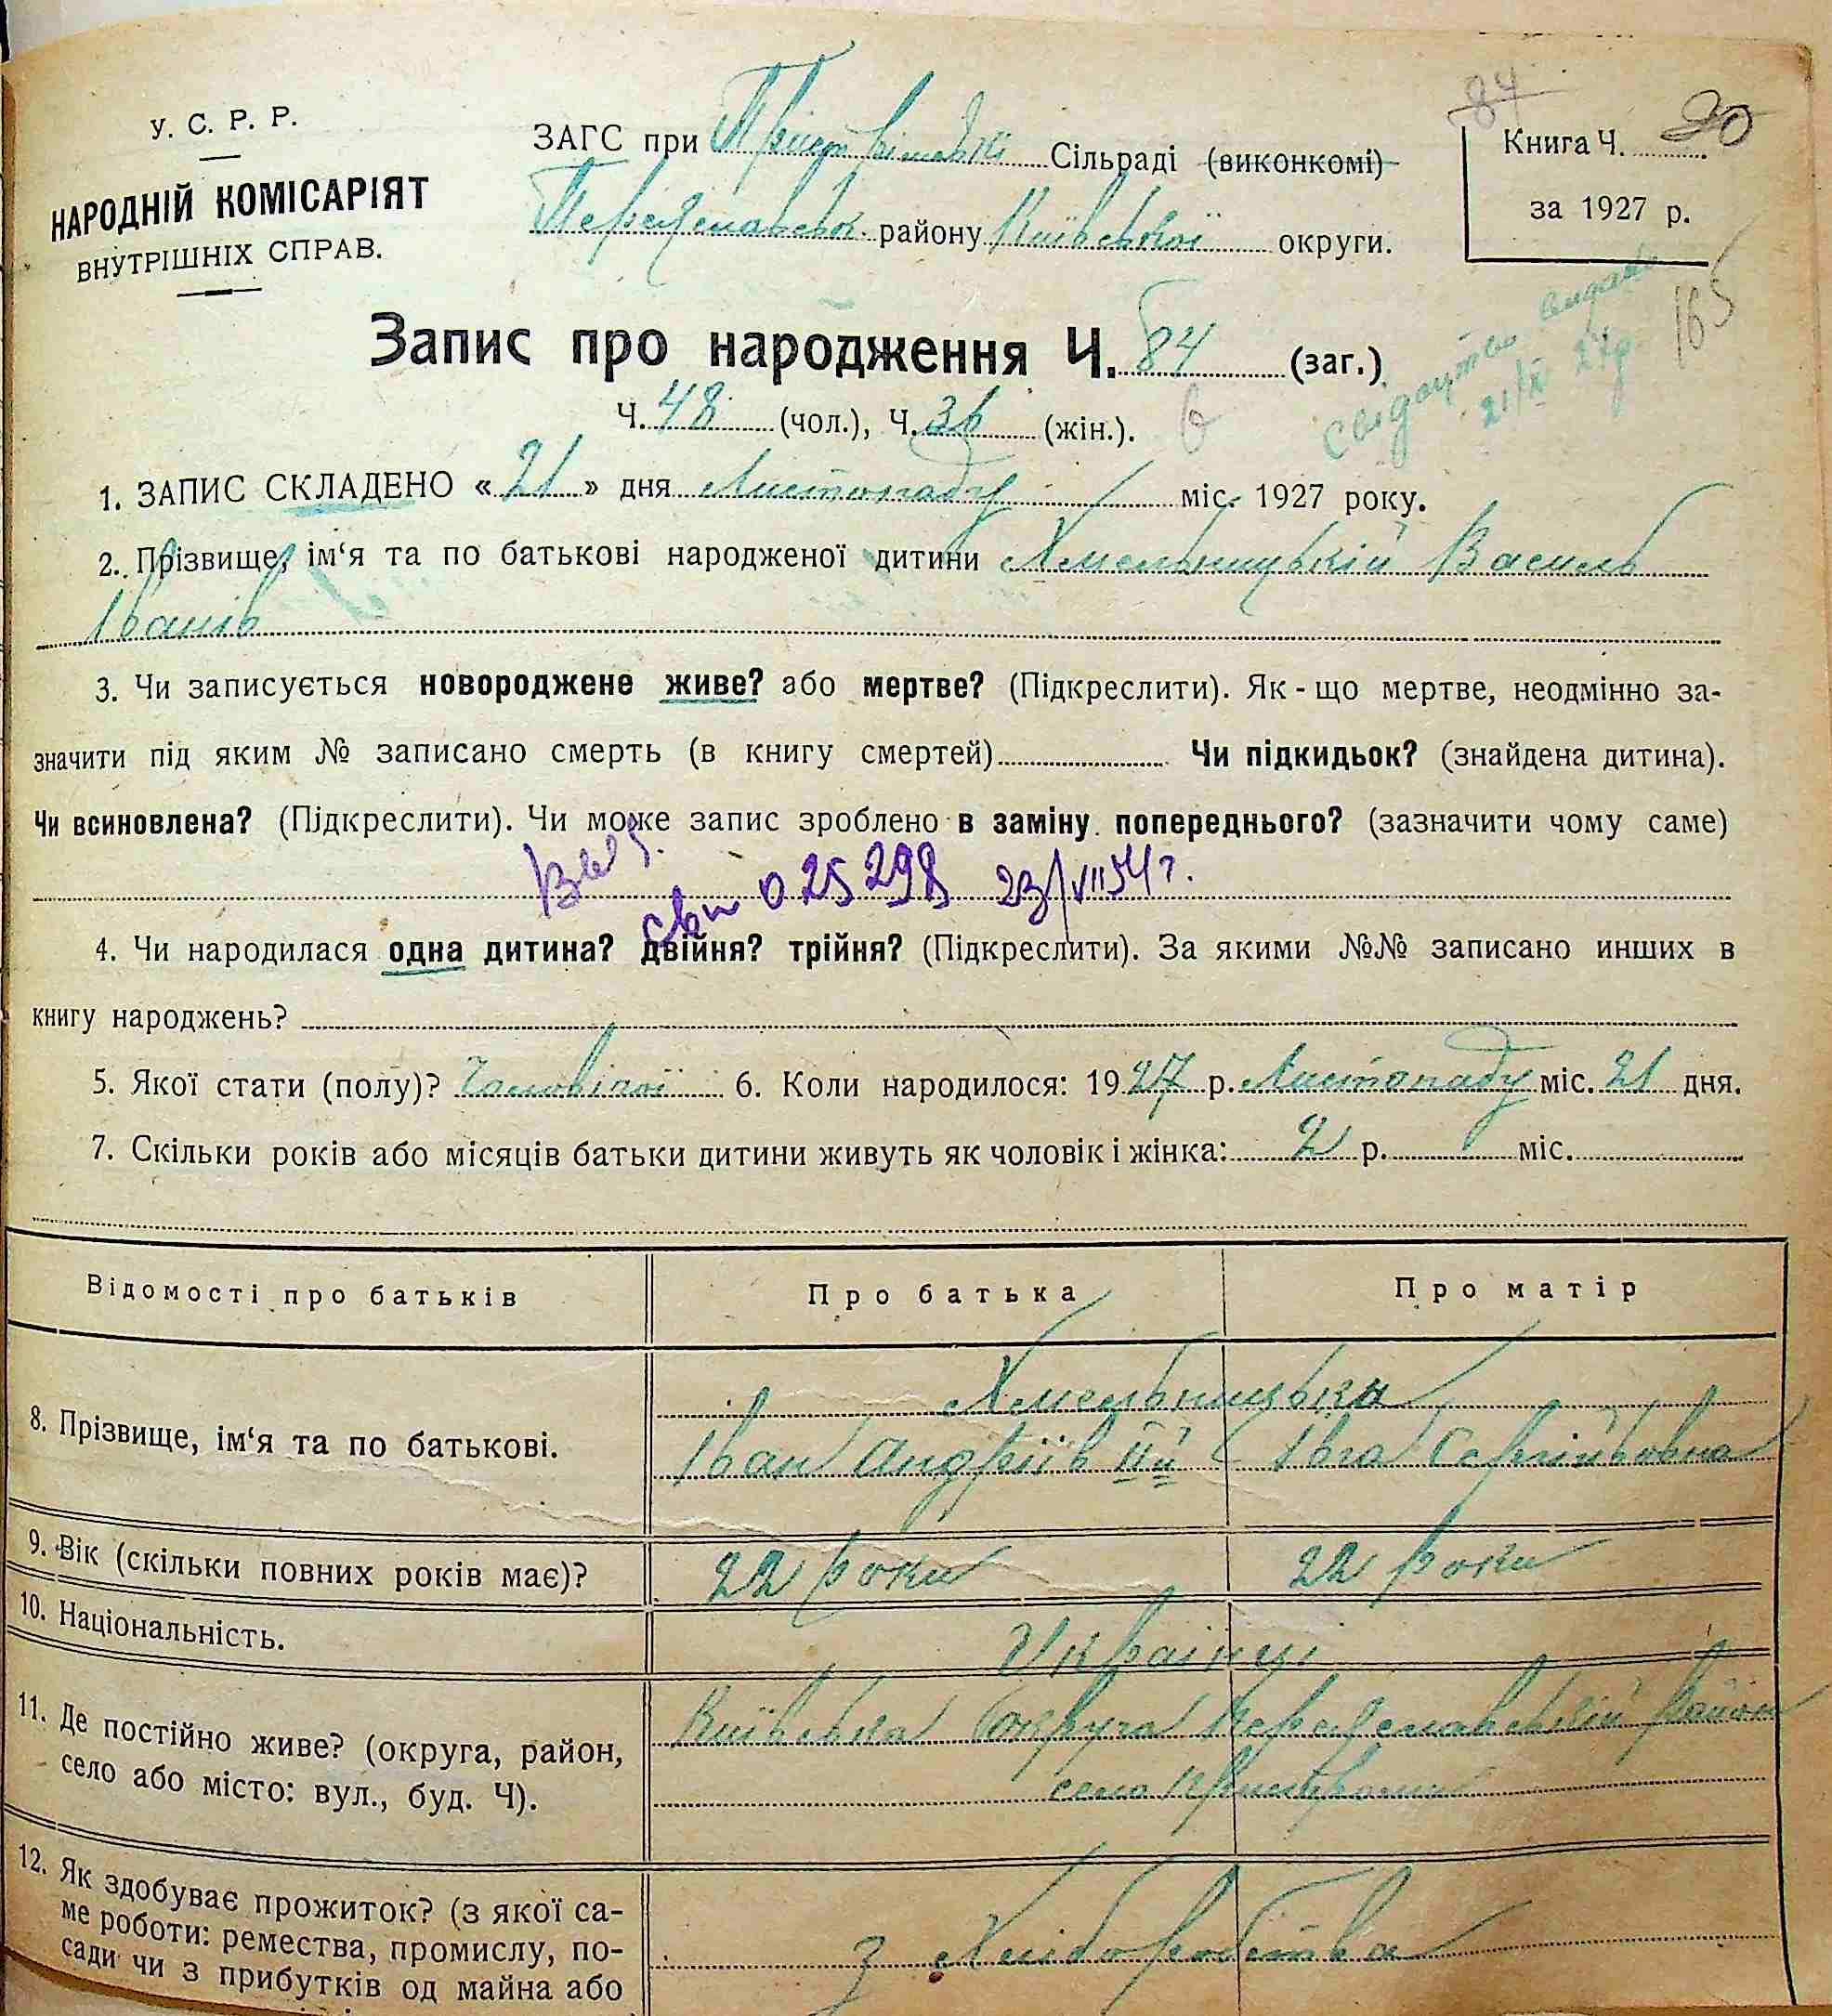 У. С. Р. Р.
НАРОДНІЙ КОМІСАРІЯТ
ВНУТРІШНІХ СПРАВ.
ЗАГС при Пристромській Сільраді (виконкомі)
Переяславськ. району Київської округи.
84
Книга Ч. 20
за 1927 р.
165
свідоцтво видано
21/XI 27р.
Запис про народження Ч. 84 (заг.)
Ч. 48 (чол.), Ч. 36 (жін.).
1. ЗАПИС СКЛАДЕНО « 21 » дня Листопаду міс. 1927 року.
2. Прізвище, ім‘я та по батькові народженої дитини Хмельницькій Василь
Іванів
3. Чи записується новороджене живе? або мертве? (Підкреслити). Як - що мертве, неодмінно за-
значити під яким № записано смерть (в книгу смертей) Чи підкидьок? (знайдена дитина).
Чи всиновлена? (Підкреслити). Чи може запис зроблено в заміну попереднього? (зазначити чому саме)
025298 23/VII 54 г.
4. Чи народилася одна дитина? двійня? трійня? (Підкреслити). За якими №№ записано инших в
книгу народжень?
5. Якої стати (полу)? Чоловічої 6. Коли народилося: 1927 р. Листопаду міс. 21 дня.
7. Скільки років або місяців батьки дитини живуть як чоловік і жінка: 2 р. міс.
Відомості про батьків Про батька Про матір
Хмельницьки
8. Прізвище, ім‘я та по батькові. Іван Андріїв ІІй Івга Сергійовна
9. Вік (скільки повних років має)? 22 роки 22 роки
10. Національність. Українці
11. Де постійно живе? (округа, район, Київська округа Переяславський район
село або місто: вул., буд. Ч). село Пристроми
12. Як здобуває прожиток? (з якої са-
ме роботи: ремества, промислу, по- З Хліборобства
сади чи з прибутків од майна або